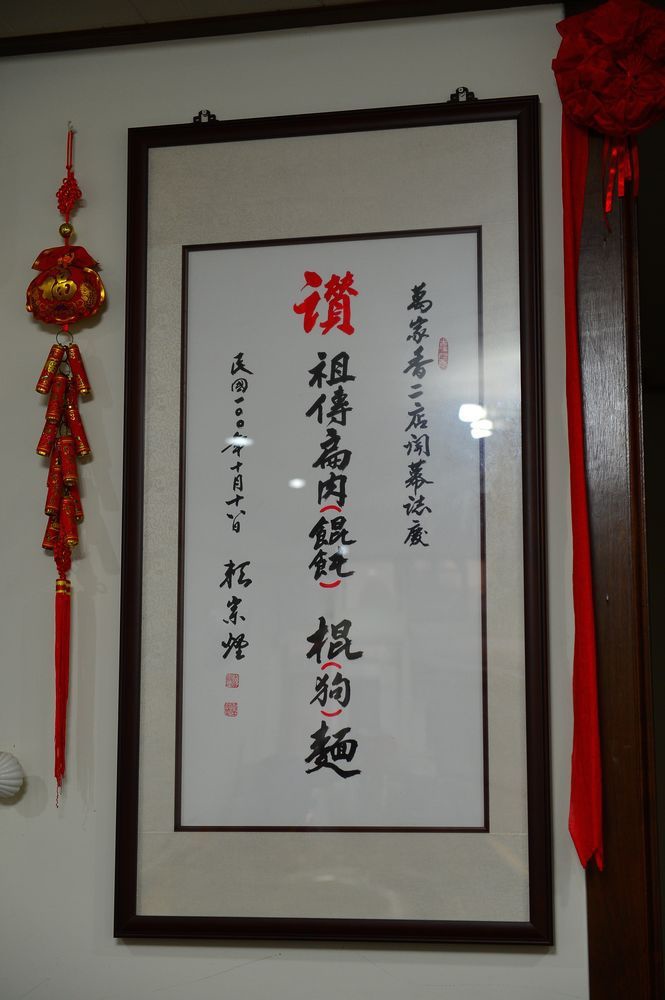 萬家香二店開幕誌慶
讚
祖傳扁肉(餛飩) 棍(狗)麵
民國一〇〇年十月十八日
賴崇煙